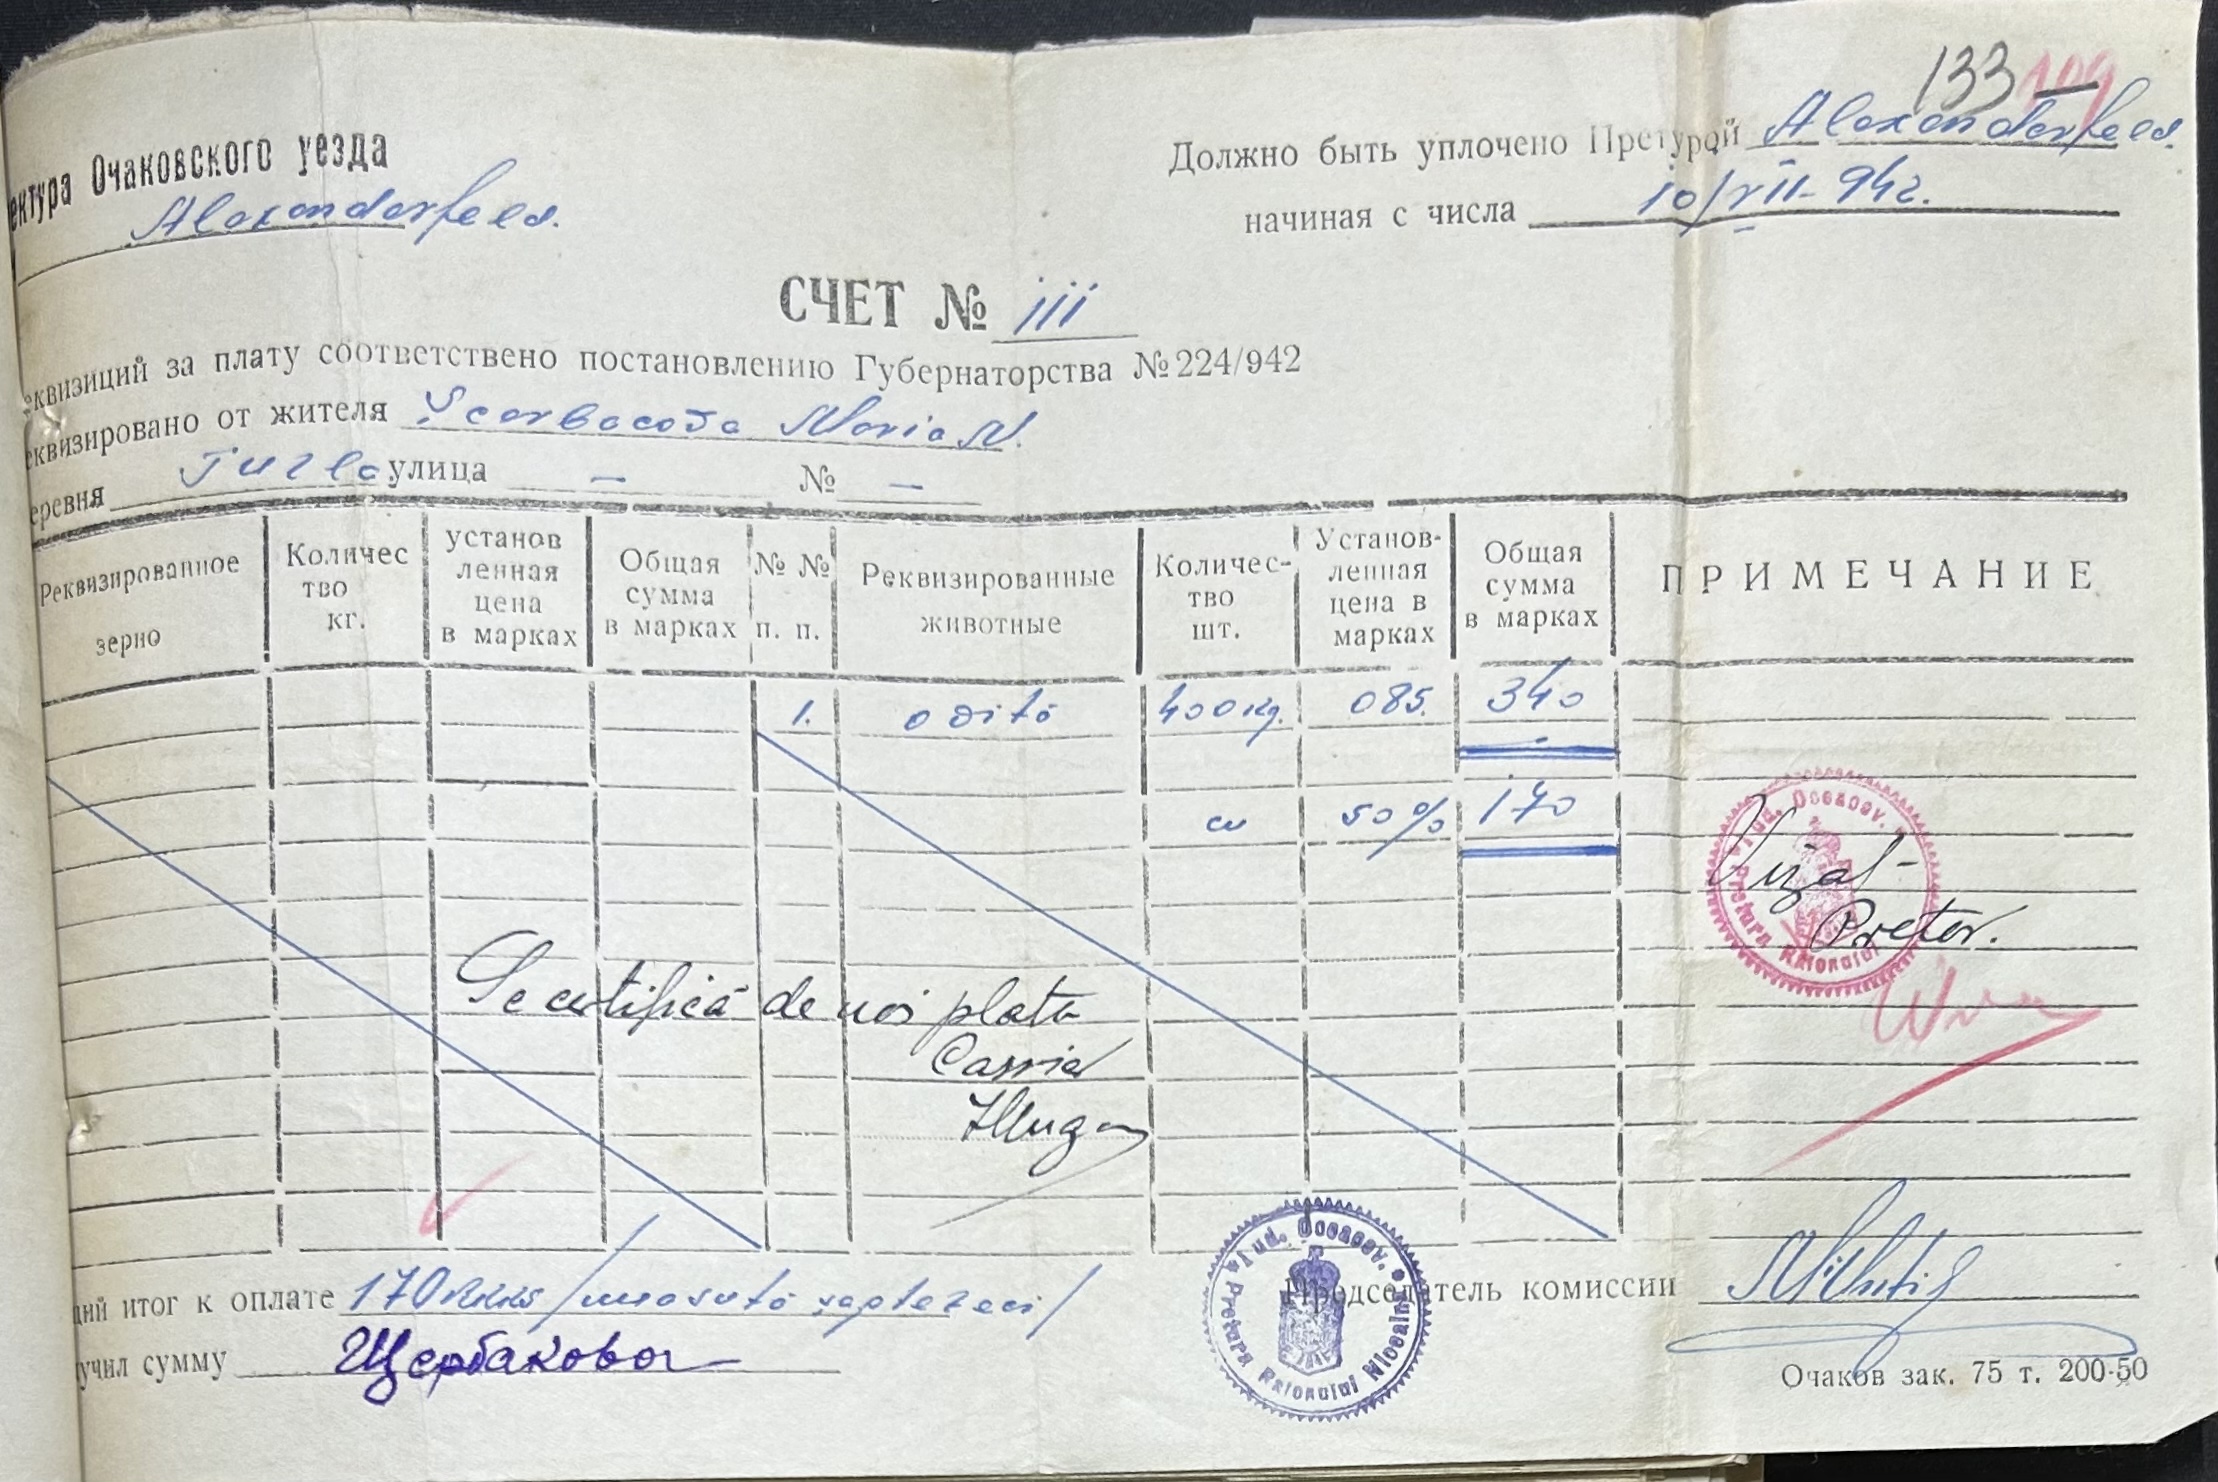 133 109
ектура Очаковского уезда
Alexanderfeld.
Должно быть уплочено Претурой Alexanderfeld.
начиная с числа 10/VII-942.
СЧЕТ № 111
еквизиций за плату соответствено постановлению Губернаторства № 224/942
еквизировано от жителя Șcerbacova Maria N.
еревня Turla улица - № -
Реквизированное зерно
Количес тво кг.
установ ленная цена в марках
Общая сумма в марках
№ № п. п.
Реквизированные животные
Количес- тво шт.
Установ- ленная цена в марках
Общая сумма в марках
ПРИМЕЧАНИЕ
1. o vită 400 kg. 085. 340
cu 50% 170
Jud. Oceacov. Pretura Raionului
Vizat
Pretor.
Se certifică de noi plata
Cassier
щий итог к оплате 170 RKKS /unasută șaptezeci/
Председатель комиссии
учил сумму Щербакова
Jud. Oceacov. Pretura Raionului
Очаков зак. 75 т. 200-50